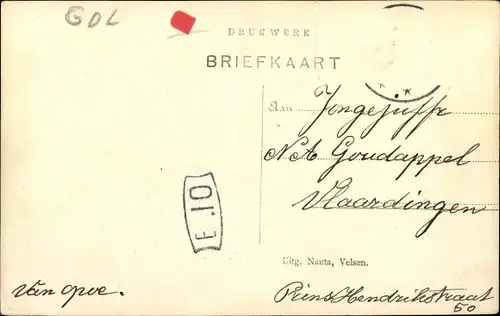 GDL
DRUKWERK
BRIEFKAART
Aan Jongejuffr
N. A. Goudappel
Vlaardingen
E.10
Uitg. Nauta, Velsen.
van opoe.
Prins Hendrikstraat
50